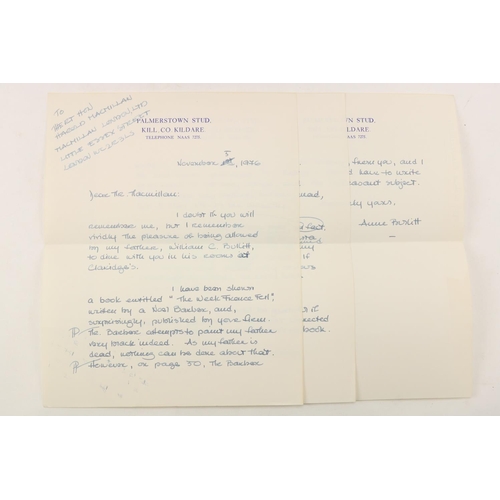 To
Rt Hon
Harold Macmillan
Macmillan London Ltd
Little Essex Street
London WC2R 3LF
PALMERSTOWN STUD,
KILL, CO. KILDARE
TELEPHONE NAAS 722
November 5, 1976
Dear Mr Macmillan:
I doubt if you will
remember me, but I remember
vividly the pleasure of being allowed
by my father, William C. Bullitt,
to dine with you in his rooms at
Claridge's.
I have been shown
a book entitled "The Week France Fell",
written by a Noel Barber, and,
surprisingly, published by your firm.
Mr. Barber attempts to paint my father
very black indeed. As my father is
dead, nothing can be done about that.
However, on page 50, Mr. Barber
STUD,
KILDARE
NAAS 722
fact,
my
if
if
book.
STUD,
KILDARE
NAAS 722
from you, and I
have to write
subject.
yours,
Anne Bullitt